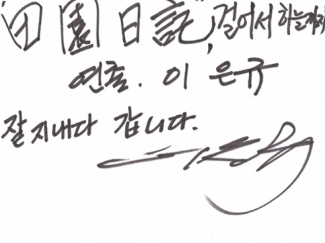 "田園日記", 걸어서 하늘까지
연출. 이 은규
잘 지내다 갑니다.